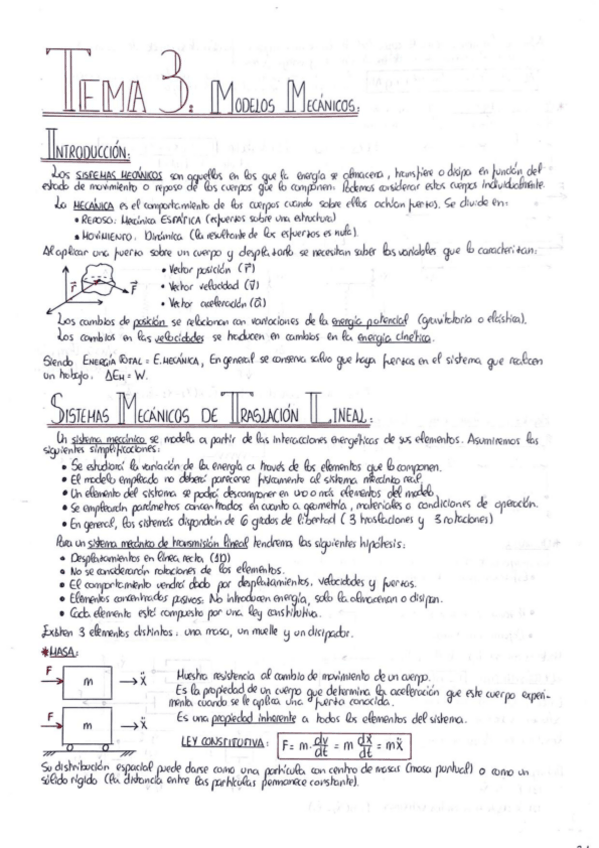 TEMA 3: MODELOS MECÁNICOS:
INTRODUCCIÓN:
Los SISTEMAS MECÁNICOS son aquellos en los que la energía se almacena, transfiere o disipa en función del
estado de movimiento o reposo de los cuerpos que lo componen. Podemos considerar estos cuerpos individualmente.
La MECÁNICA es el comportamiento de los cuerpos cuando sobre ellos actúan fuerzas. Se divide en:
• REPOSO: Mecánica ESTÁTICA (esfuerzos sobre una estructura)
• MOVIMIENTO: Dinámica (la resultante de los esfuerzos es nula).
Al aplicar una fuerza sobre un cuerpo y desplazarlo se necesitan saber las variables que lo caracterizan:
• Vector posición (r⃗)
• Vector velocidad (v⃗)
• Vector aceleración (a⃗)
r⃗ F⃗
Los cambios de posición se relacionan con variaciones de la energía potencial (gravitatoria o elástica).
Los cambios en las velocidades se traducen en cambios en la energía cinética.
Siendo ENERGÍA TOTAL = E.MECÁNICA, En general se conserva salvo que haya fuerzas en el sistema que realicen
un trabajo. ΔEm = W.
SISTEMAS MECÁNICOS DE TRASLACIÓN LINEAL:
Un sistema mecánico se modela a partir de las interacciones energéticas de sus elementos. Asumiremos las
siguientes simplificaciones:
• Se estudiará la variación de la energía a través de los elementos que lo componen.
• El modelo empleado no deberá parecerse físicamente al sistema mecánico real.
• Un elemento del sistema se podrá descomponer en uno o más elementos del modelo.
• Se emplearán parámetros concentrados en cuanto a geometría, materiales o condiciones de operación.
• En general, los sistemas dispondrán de 6 grados de libertad (3 traslaciones y 3 rotaciones)
Para un sistema mecánico de transmisión lineal tendremos las siguientes hipótesis:
• Desplazamientos en línea recta (1D)
• No se considerarán rotaciones de los elementos.
• El comportamiento vendrá dado por desplazamientos, velocidades y fuerzas.
• Elementos concentrados pasivos: No introducen energía, solo la almacenan o disipan.
• Cada elemento está compuesto por una ley constitutiva.
Existen 3 elementos distintos: una masa, un muelle y un disipador.
*MASA:
F m ẍ
Muestra resistencia al cambio de movimiento de un cuerpo.
Es la propiedad de un cuerpo que determina la aceleración que este cuerpo experi-
menta cuando se le aplica una fuerza conocida.
F m ẍ
Es una propiedad inherente a todos los elementos del sistema.
LEY CONSTITUTIVA: F = m · dv/dt = m dẋ/dt = mẍ
Su distribución espacial puede darse como una partícula con centro de masas (masa puntual) o como un
sólido rígido (la distancia entre las partículas permanece constante).